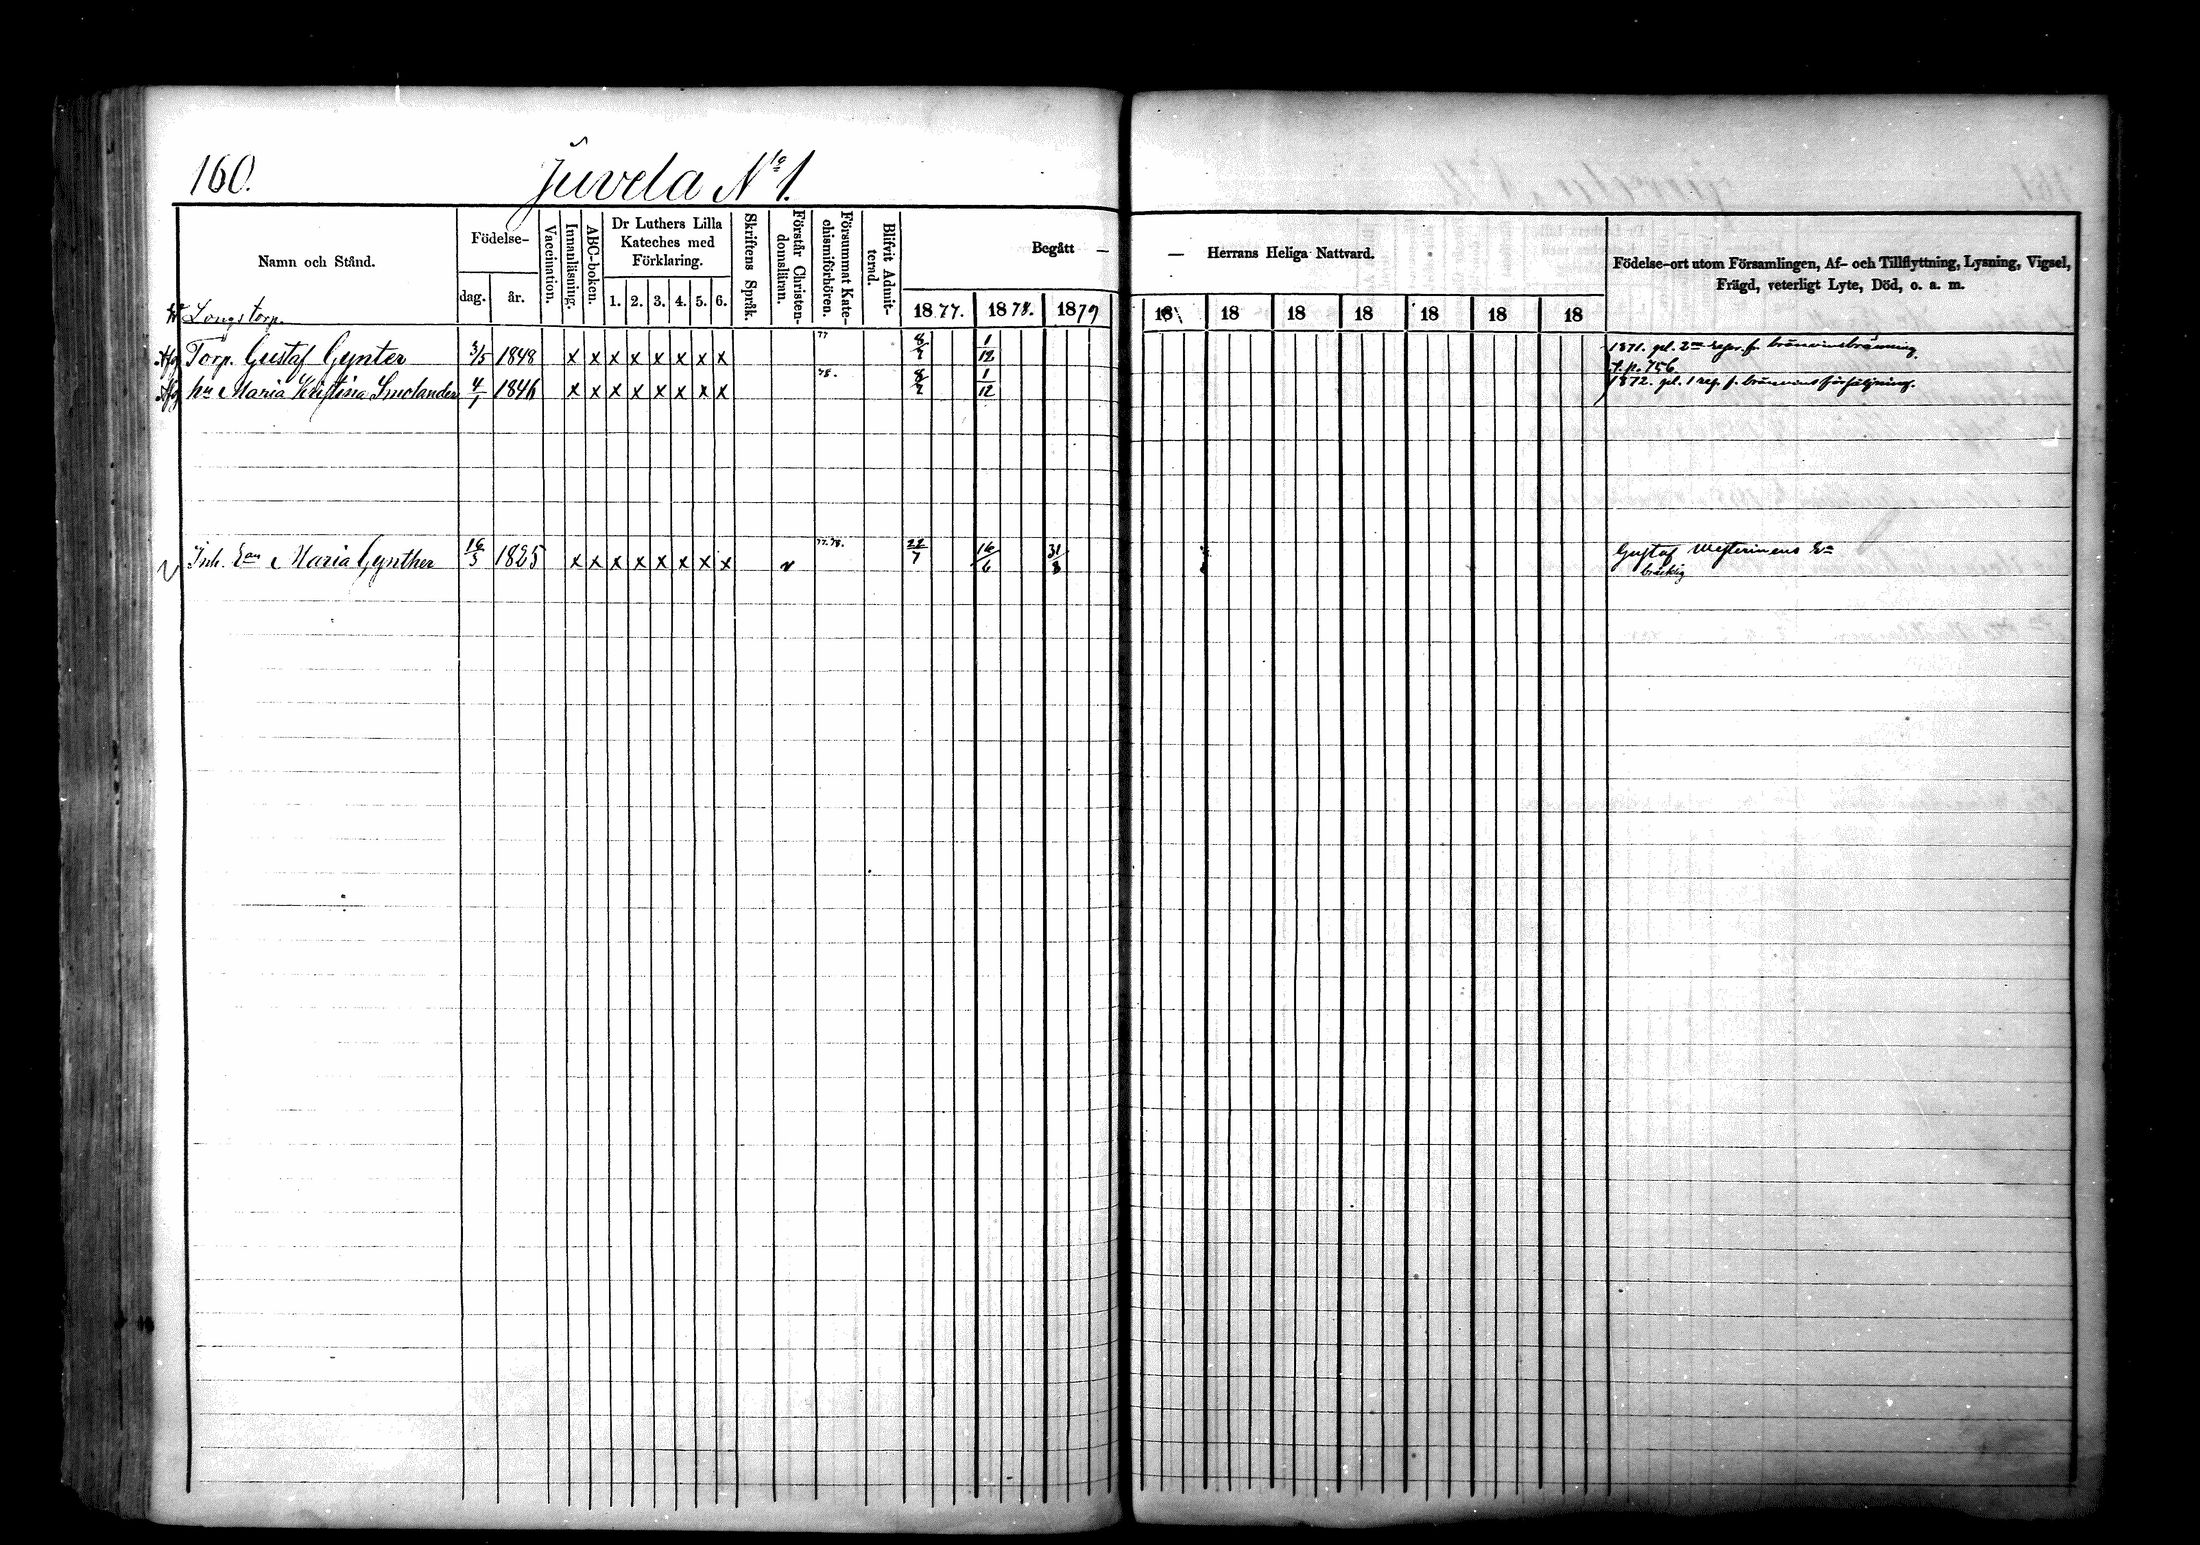 160.
Juvela No 1.
Namn och Stånd.
Födelse-
dag.
år.
Vaccination.
Innanläsning.
ABC-boken.
Dr Luthers Lilla
Kateches med
Förklaring.
1. 2. 3. 4. 5. 6.
Skriftens Språk.
Förstår Christen-
domsläran.
Försummat Kate-
chismiförhören.
Blifvit Admit-
terad.
Begått —
1877. 1878. 1879
— Herrans Heliga Nattvard.
18 18 18 18 18 18 18
Födelse-ort utom Församlingen, Af- och Tillflyttning, Lysning, Vigsel,
Frägd, veterligt Lyte, Död, o. a. m.
Longstorp.
Torp. Gustaf Gynter 3/5 1848 x x x x x x x x 77 8/7 1/12 1871. pl. 2
f. p. 756
hu Maria Kristina Smolander 4/1 1846 x x x x x x x x 78. 8/7 1/12 1872. pl. 1 f. bränvinsförsäljning.
Inh. Ean Maria Gynther 16/3 1825 x x x x x x x x v 77.78. 22/7 16/6 31/8 Gustaf Westerinens Ea
bräcklig